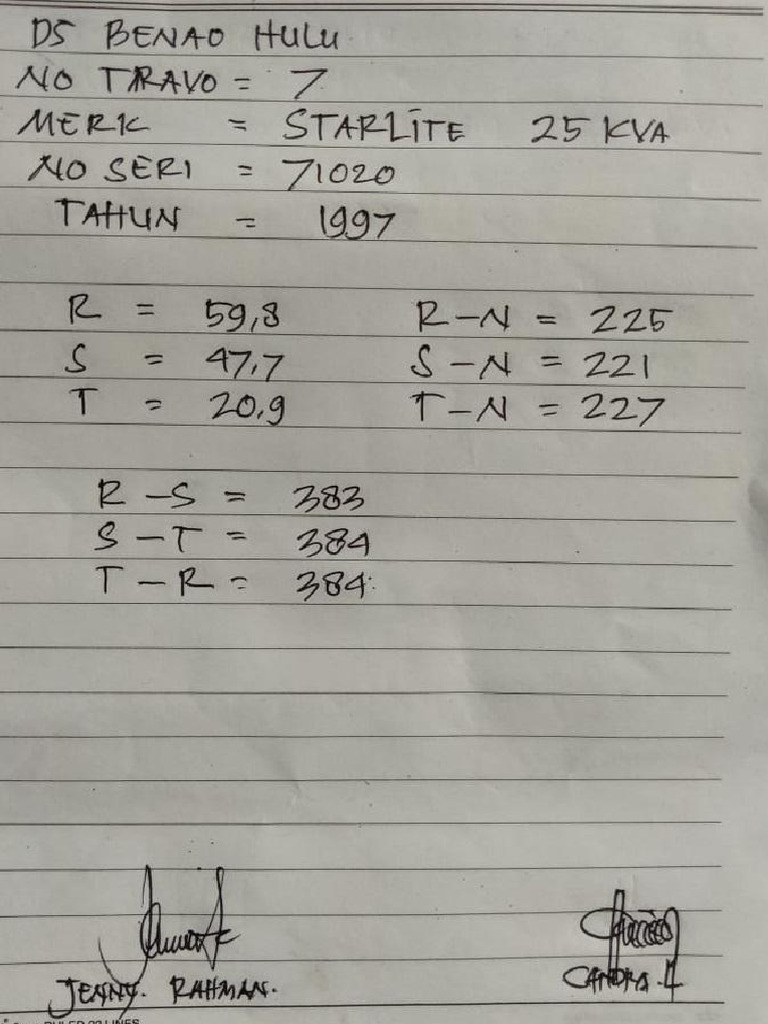 DS BENAO HULU
NO TRAVO = 7
MERK = STARLITE 25 KVA
NO SERI = 71020
TAHUN = 1997
R = 59,8 R-N = 225
S = 47,7 S-N = 221
T = 20,9 T-N = 227
R-S = 383
S-T = 384
T-R = 384
JENNY. RAHMAN.
CANDRA.
RULED 32 LINES